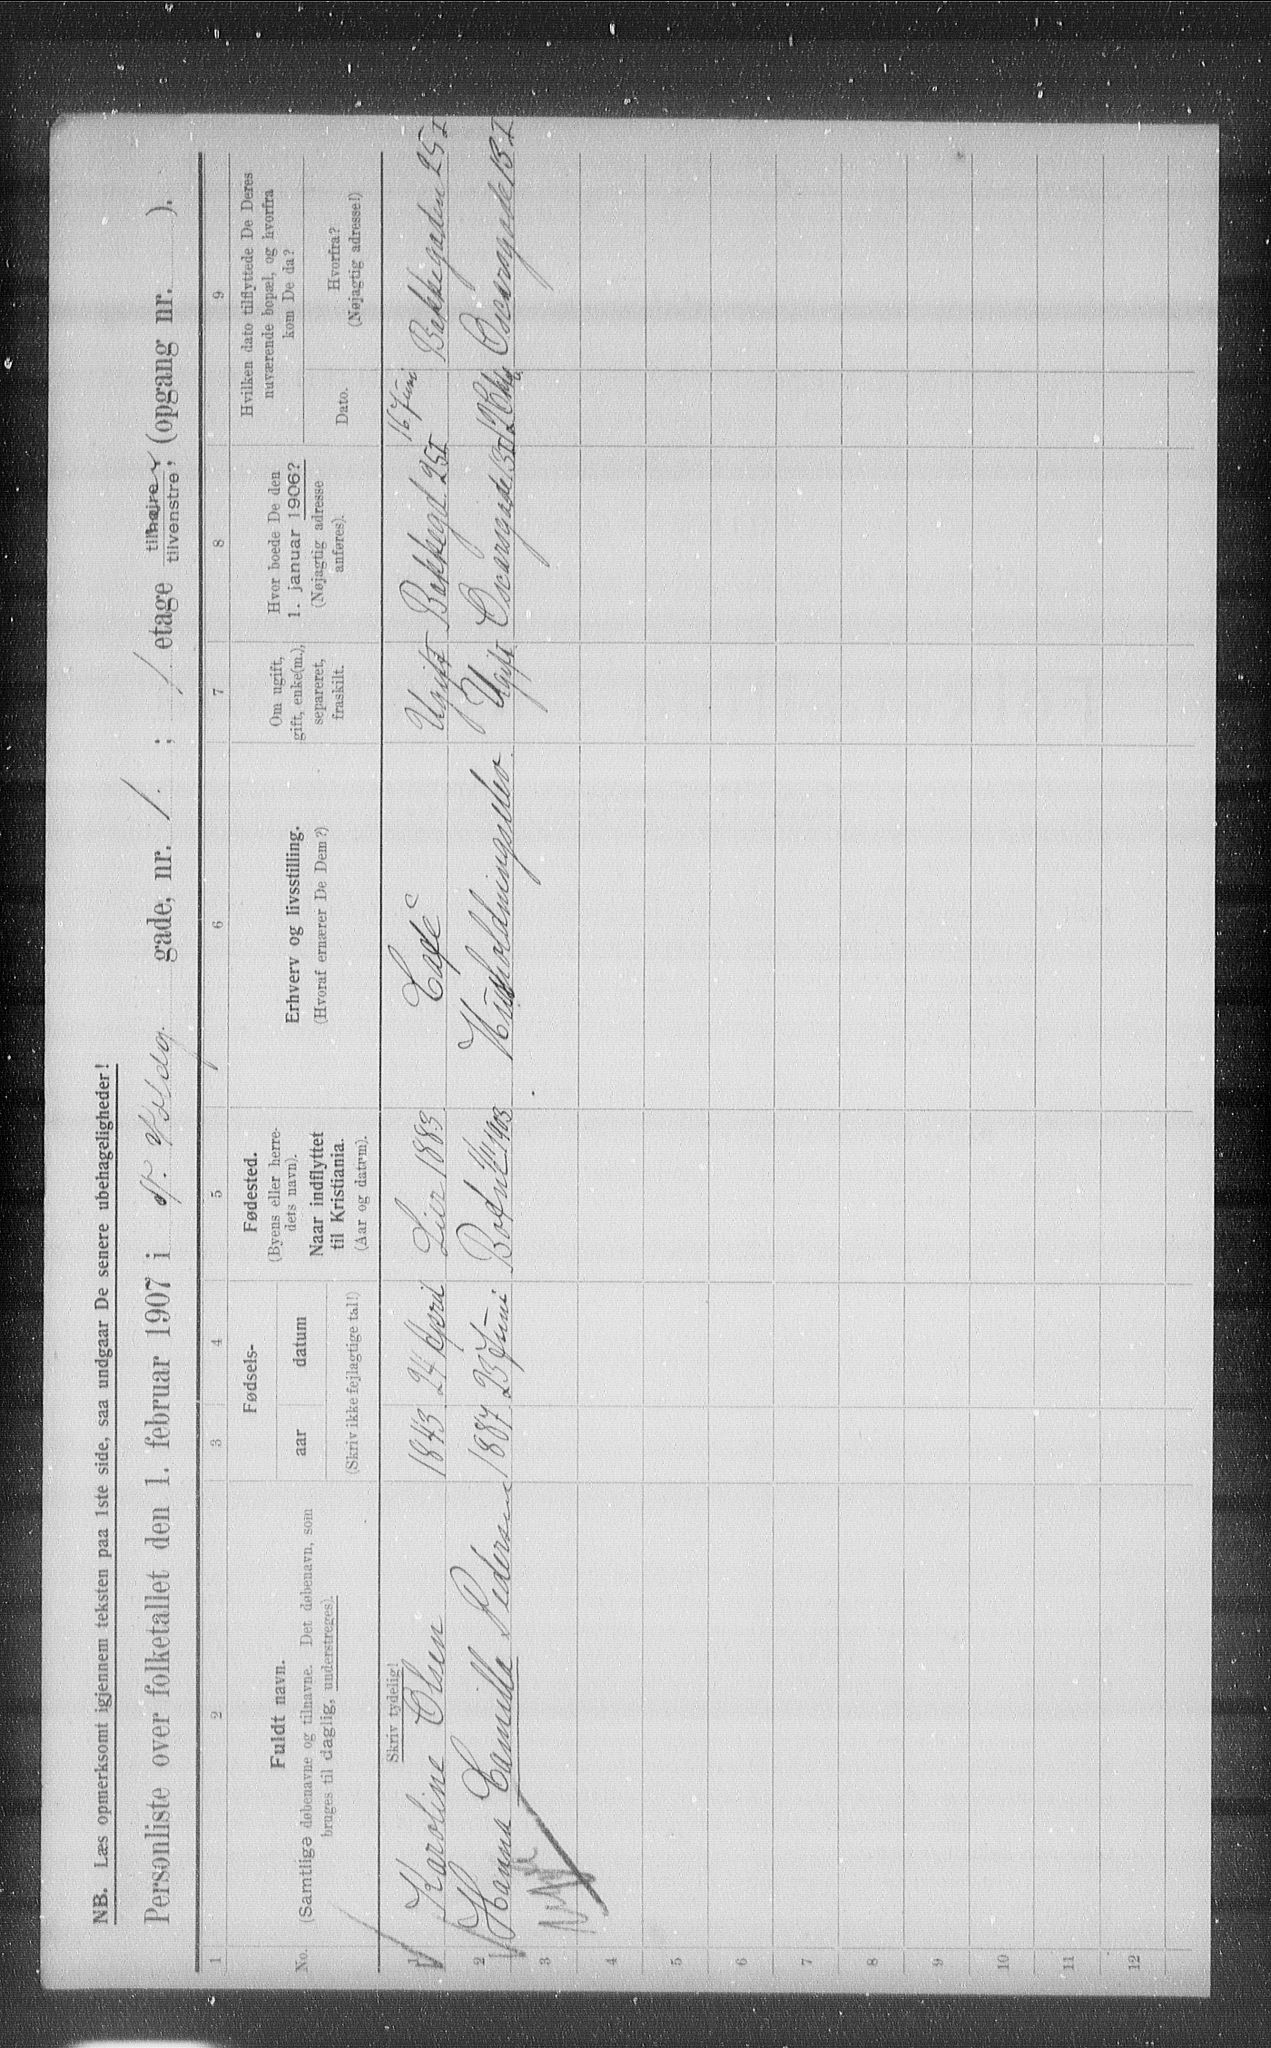 NB. Læs opmerksomt igjennem teksten paa 1ste side, saa undgaar De senere ubehageligheder!
Personliste over folketallet den 1. februar 1907 i gade, nr. 1. ; 1 etage tilhøjre tilvenstre, (opgang nr. ).
1 2 3 4 5 6 7 8 9
No.
Fuldt navn.
(Samtlige døbenavne og tilnavne. Det døbenavn, som
bruges til daglig, understreges).
Fødsels-
aar datum
(Skriv ikke fejlagtige tal!)
Fødested.
(Byens eller herre-
dets navn).
Naar indflyttet
til Kristiania.
(Aar og datum).
Erhverv og livsstilling.
(Hvoraf ernærer De Dem?)
Om ugift,
gift, enke(m.),
separeret,
fraskilt.
Hvor boede De den
1. januar 1906?
(Nøjagtig adresse
anføres).
Hvilken dato tilflyttede De Deres
nuværende bopæl, og hvorfra
kom De da?
Dato.
Hvorfra?
(Nøjagtig adresse!)
Skriv tydelig!
1 Karoline Olsen 1843 24 April Lier 1883 Café Ugift Bakkegd 25 I 16 Juni Bakkegaden 25 I
2 Hanna Camilla Pedersen 1887 23 Juni 1903 Husholdningselev Ugift Oscarsgade 13 I Oscarsgade 13 I
3
4
5
6
7
8
9
10
11
12